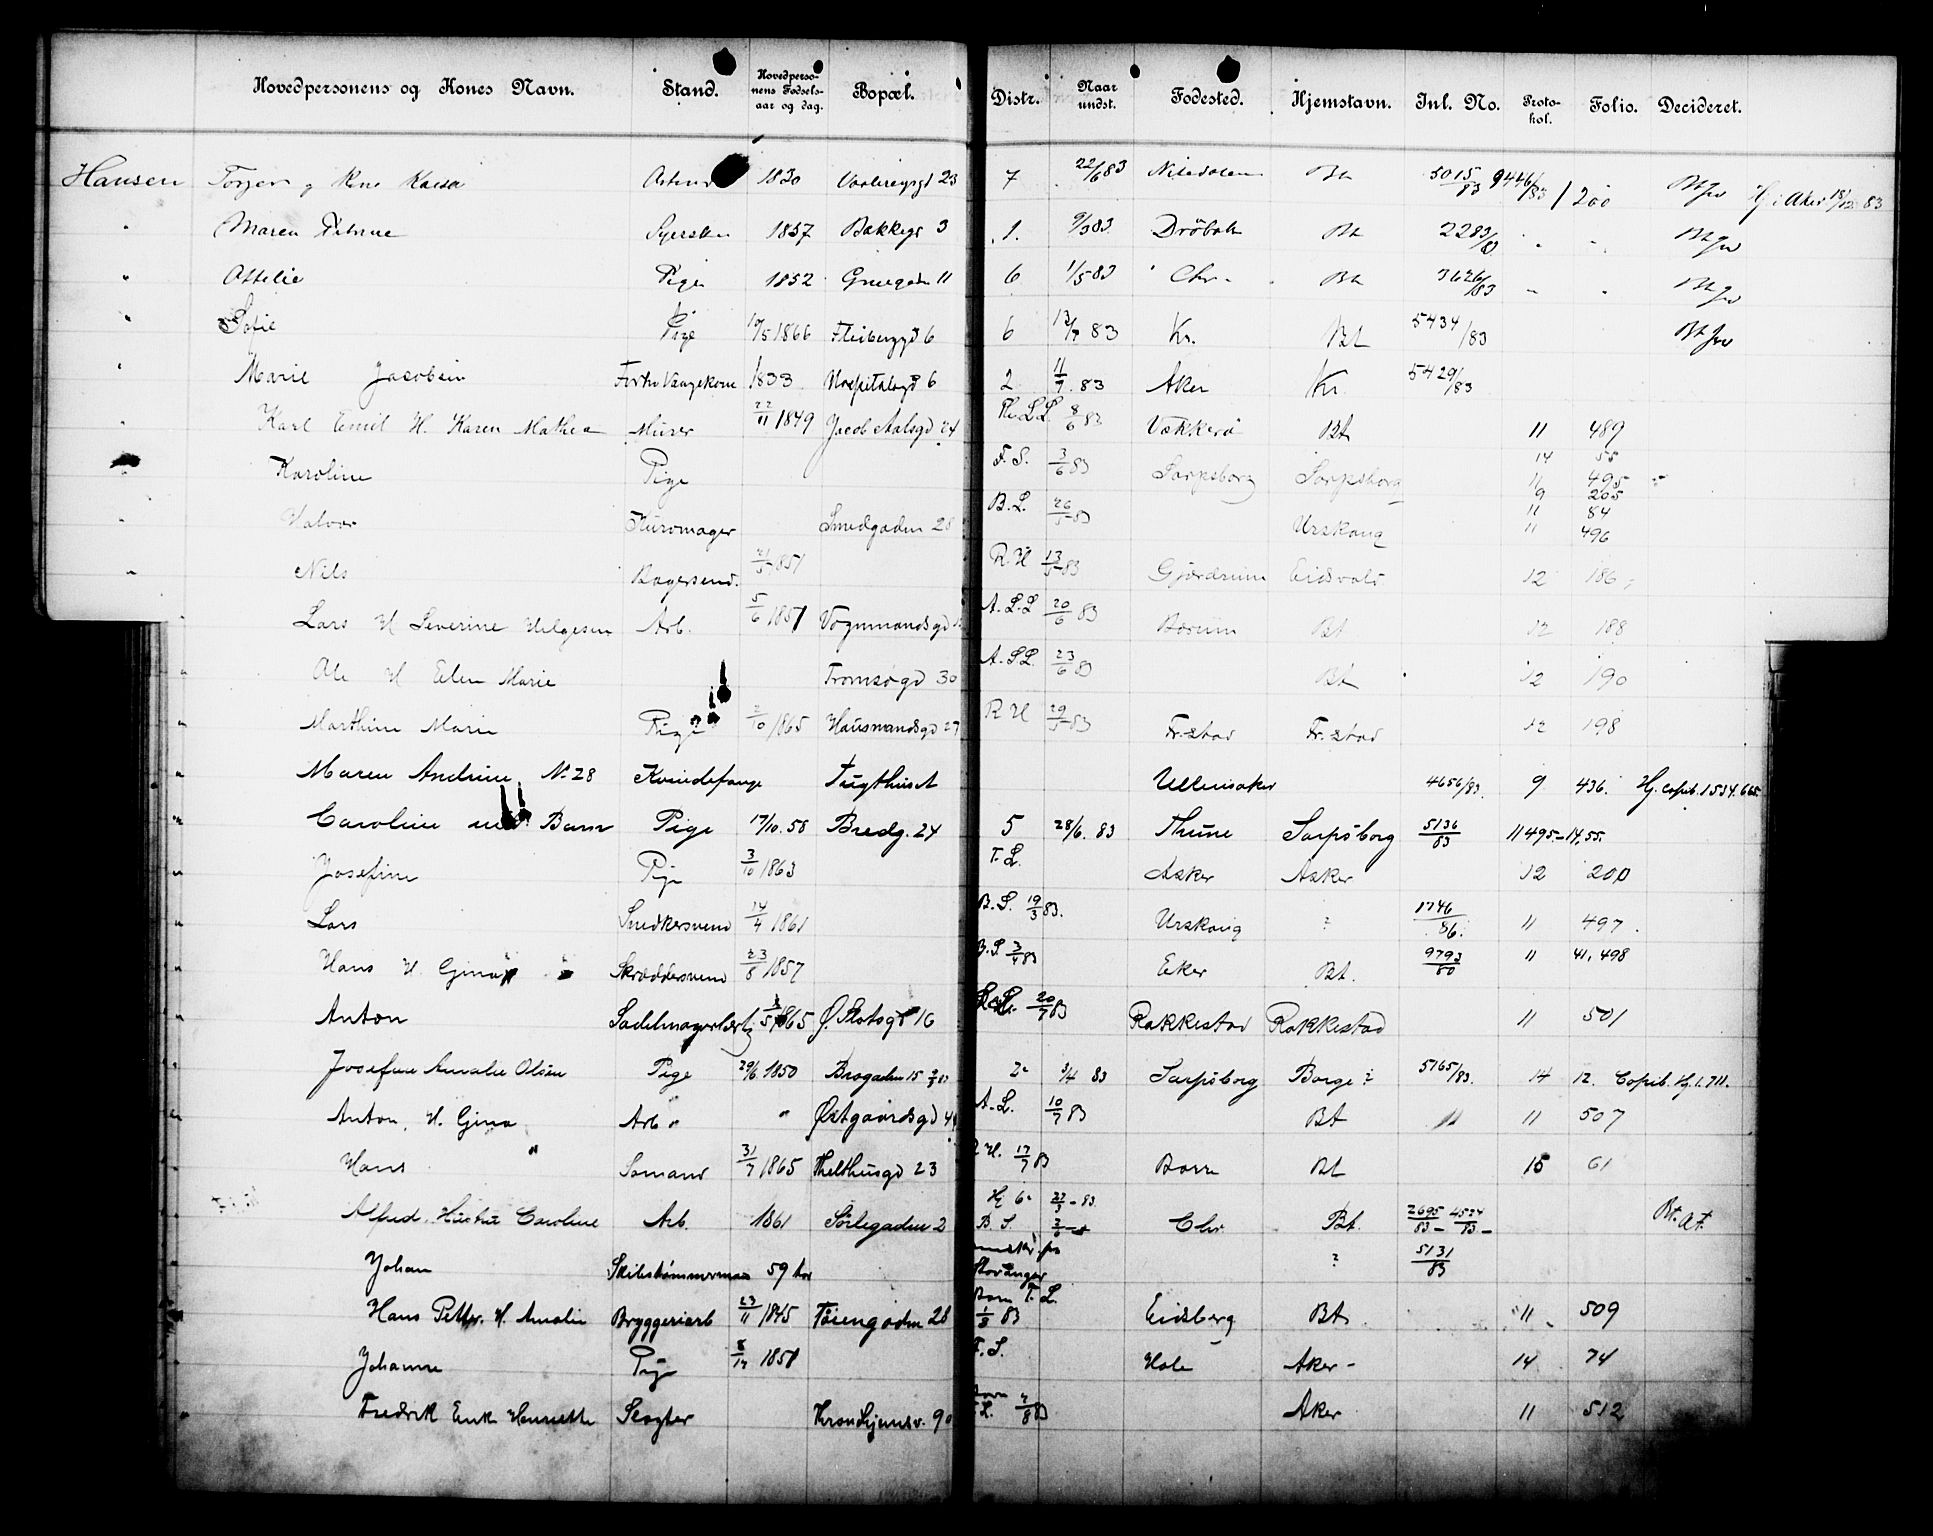 Hovedpersonens og Kones Navn. Stand. Hovedpersonens Fødselsaar og dag. Bopæl. Distr. Naar undst. Fødested. Hjemstavn. Inl. No. Protokol. Folio. Decideret.
Hansen Torger og Kone Kaisa 1830 23 7 22/6 83 Nitedalen Bt 5015/83 9446/83 / 200 Bt Hj. i Aker 83
" Maren 1837 Bakkegd 3 1. 9/3 83 Dröbak Bt 2283/83 " " Bt
" Ottelie Pige 1852 11 6 1/5 83 Chr. Bt 3626/83 " " Bt
" Sofie Pige 1866 6 6 83 Kr. Bt 5434/83 Bt
" Marie Jacobsen 1833 Hospitalsgd 6 2 11/7 83 Aker Kr. 5429/83
" Karl Emil H. Karen Mathea Murer 22/11 1849 Jacob Aalsgd 24 8/6 83 Vækkerö Bt 11 489
Karoline Pige F. S. 3/6 83 Sarpsborg Sarpsborg 14 55 11 495
" Halvor Kuromager Smedgaden 28 B. L. 26/5 83 Urskoug 9 205 11 84 11 496
" Nils Bagersvend. 1851 R. H 13/5 83 Gjærdrum Eidsvold 12 186
" Lars H Severine Helgesen Arb. 5/6 1851 Vognmandsgd A. L. L 20/6 83 Bærum Bt 12 188
" Ole H Elen Marie Tromsøgd 30 A. S L. 23/6 83 Bt 12 190
" Marthine Marie Pige 2/10 1865 Hausmandsgd 27 R H 29/5 83 Fr.stad Fr. stad 12 198
" Maren Andrine. No 28 Kvindefange Tugthuset Ullensaker 4656/83. 9 436. Hj. Copib. 1534. 665.
" Caroline Barn Pige 17/10. 58 Bredg. 24 5 28/6. 83 Thune Sarpsborg 5136/83 11 495 – 14, 55.
" Josefine Pige 3/10 1863 T. L. Asker Asker 12 200
" Lars Smedkersvend 14/4 1861 B. S. 19/3 83. Urskoug ? 1746/86. 11 497.
" Hans H. Gina Skræddersvend 23/8 1857 B. S. 3/4 83 Eker Bt. 9793/80 11 41, 498
" Anton Sadelmagerlærl. 1865 Ø. Slotsgd 16 20/7 83 Rakkestad Rakkestad 11 501
" Josefine Amalie Olsen Pige 29/6. 1850 Brogaden 15 2 3/4 83 Sarpsborg Borge ? 5165/83. 14 12. Copib. Hj. 1. 711.
" Anton, H. Gina Arb " " Østgaardsgd A. L. 10/7 83 Bt " 11 507
" Hans " Sømand 31/7 1865 23 R H. 17/7 83 Borre Bt 15 61
" Alfred. Hustru Caroline Arb. 1861 Sörlegaden 2 Hj 6 22/3 – 83. B. S. Chr. Bt. 2695/83 – 4524/83 – Bt. At.
" Johan Skibstömmermand 59 Aar Stavanger ? 5131/83
" Hans Petter. H. Amalie Bryggeriarb 23/11 1845 Töiengaden 28 T. L. 1/8 83 Eidsberg Bt. 11 509
" Johanne Pige 1851 F. S. Hole Aker – 14 74
" Fredrik Enk Henriette Slagter 2/8 83 Aker 11 512